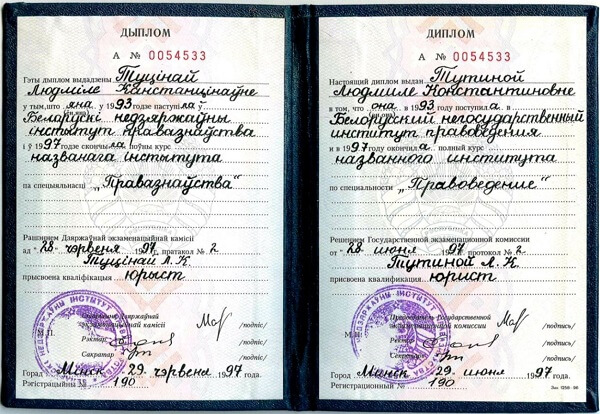 ДЫПЛОМ
А № 0054533
Гэты дыплом выдадзены Туцінай
Людміле Канстанцінаўне
у тым, што яна у 1993 годзе паступіла ў
Беларускі недзяржаўны
інстытут правазнаўства
і ў 1997 годзе скончыла поўны курс
названага інстытута
па спецыяльнасці „Правазнаўства“
Рашэннем Дзяржаўнай экзаменацыйнай камісіі
ад “28” чэрвеня 1997 г., пратакол № 2
Туцінай Л. К.
прысвоена кваліфікацыя юрыст
Дзяржаўнай
экзаменацыйнай камісіі /подпіс/
М.П.
Рэктар /подпіс/
Сакратар /подпіс/
Горад Мінск 29 чэрвеня 1997 года.
Рэгістрацыйны № 190
ДИПЛОМ
А № 0054533
Настоящий диплом выдан Тутиной
Людмиле Константиновне
в том, что она в 1993 году поступила в
Белорусский негосударственный
институт правоведения
и в 1997 году окончила полный курс
названного института
по специальности „Правоведение“
Решением Государственной экзаменационной комиссии
от “28” июня 1997 г. протокол № 2
Тутиной Л. К.
присвоена квалификация юрист
Председатель Государственной
экзаменационной комиссии /подпись/
Ректор /подпись/
Секретарь /подпись/
Город Минск 29 июня 1997 года.
Регистрационный № 190